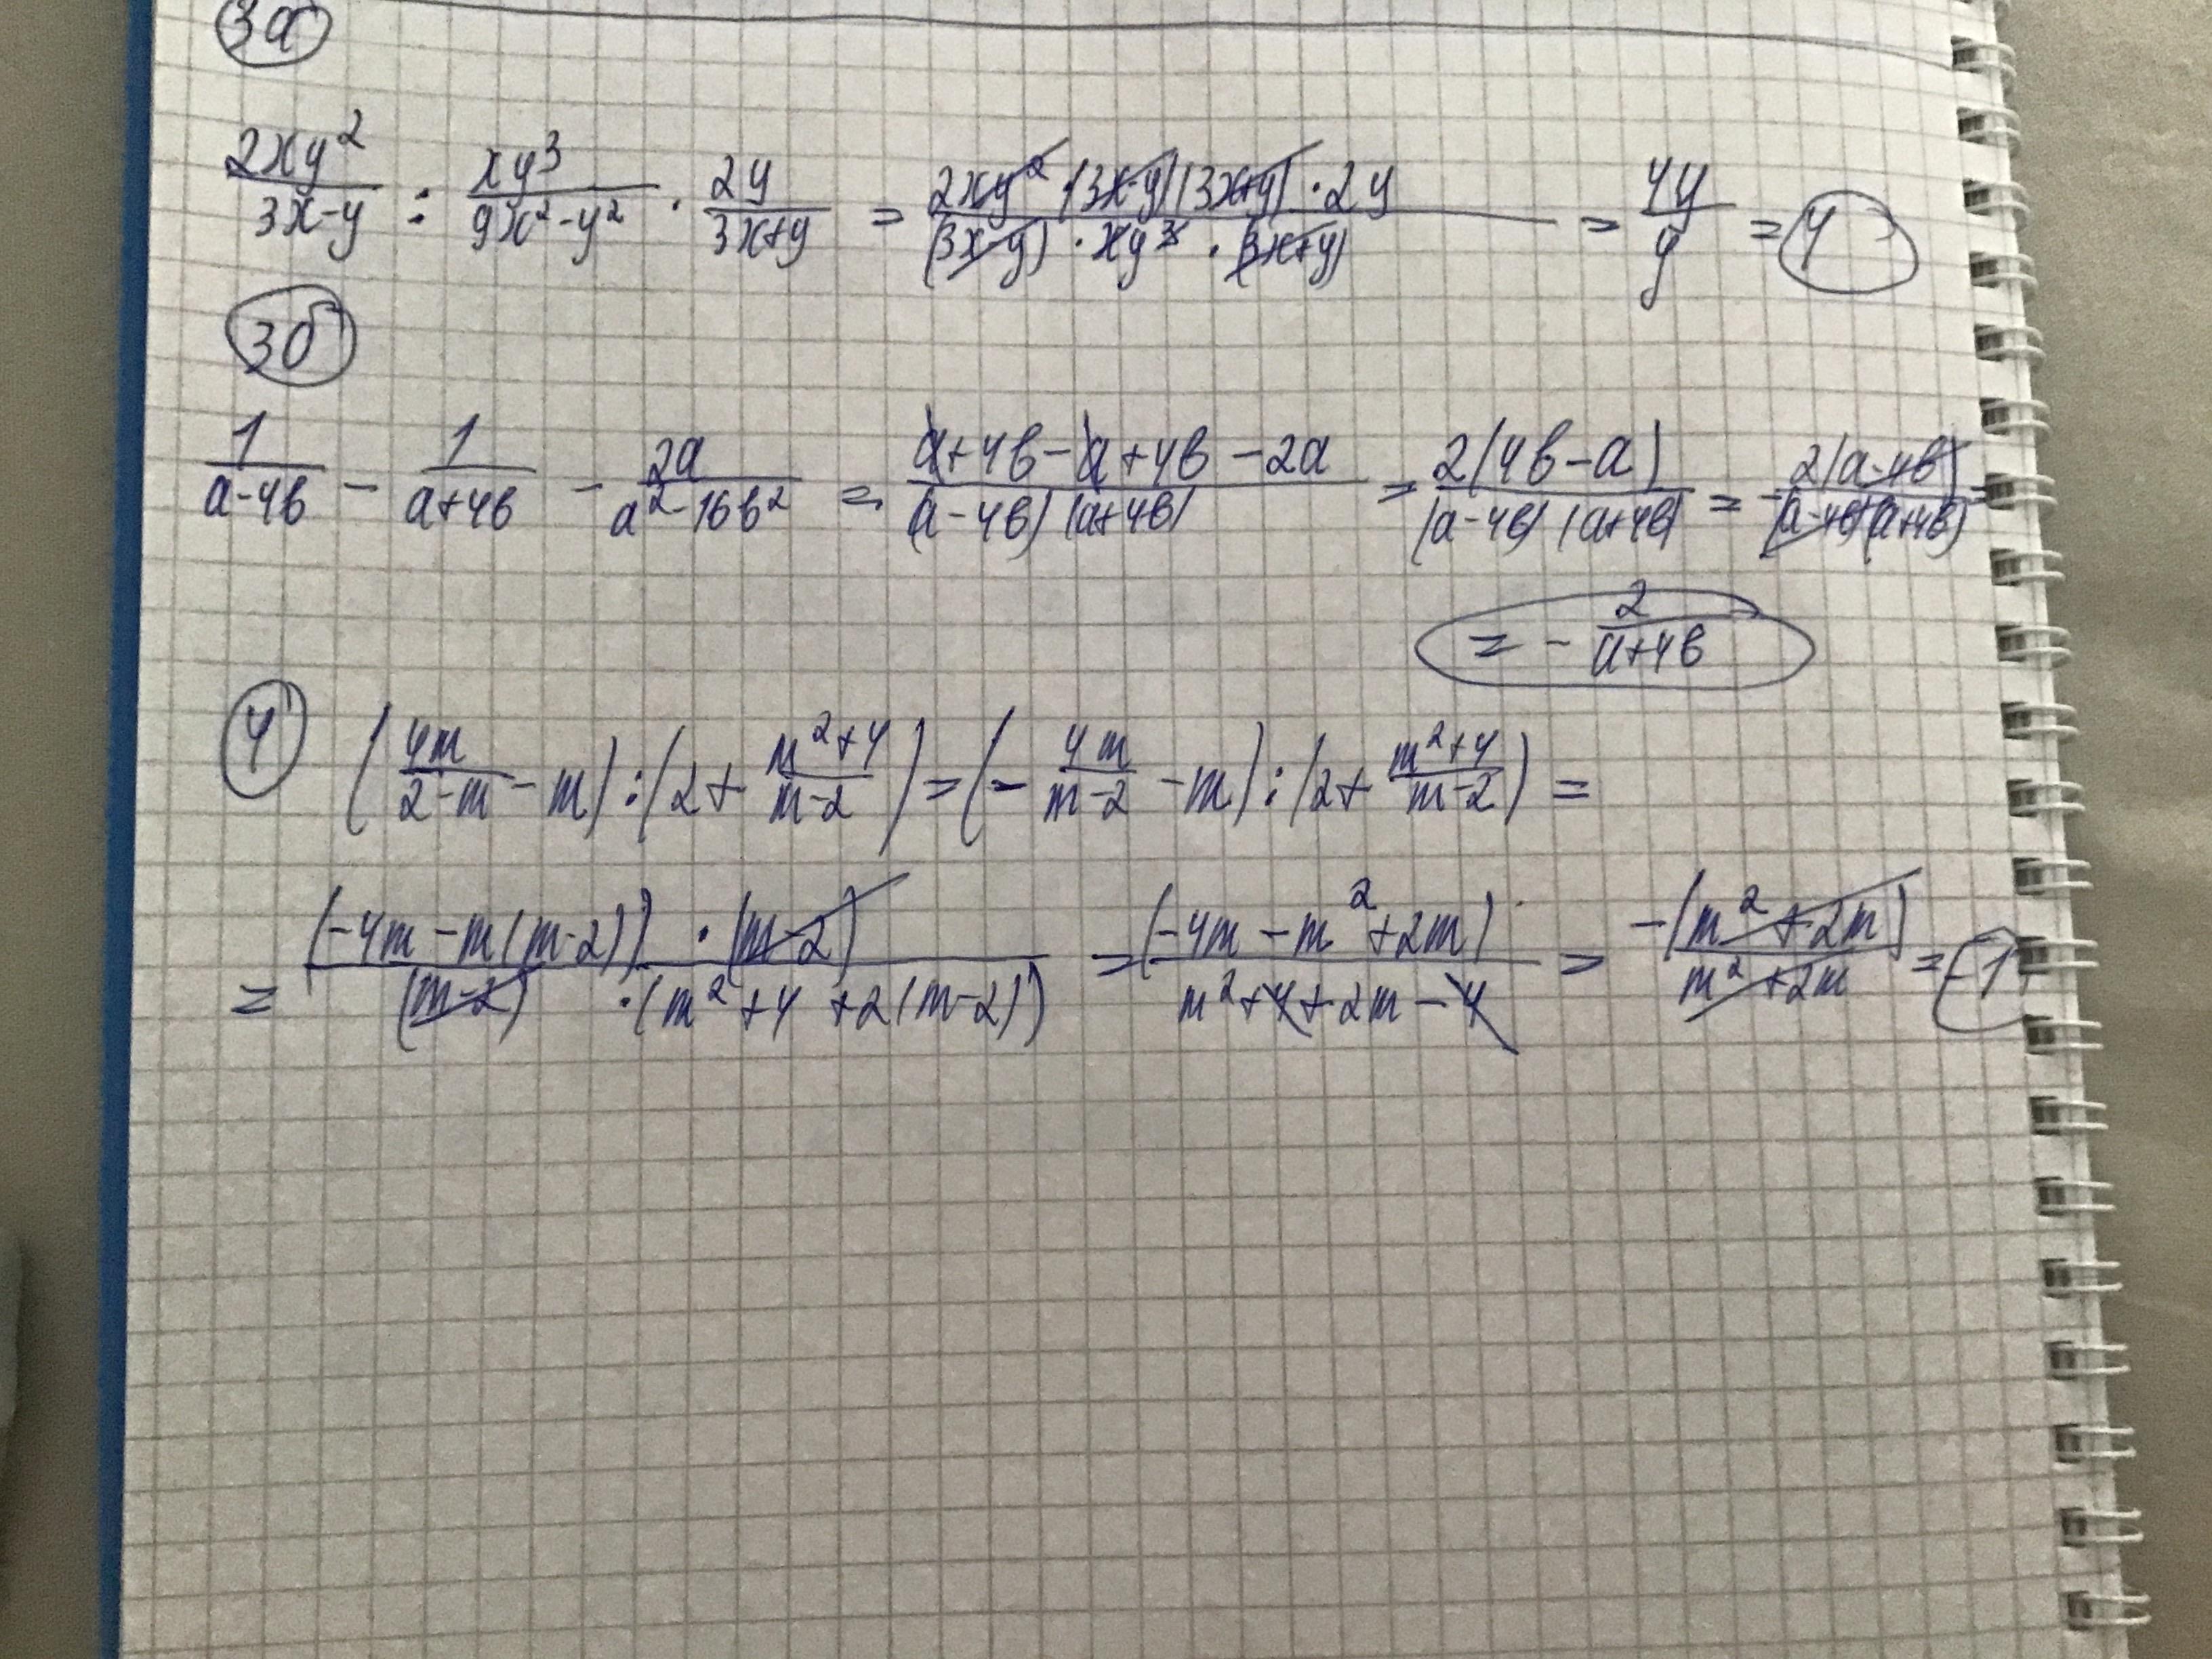 3а
2xy²/(3x-y) : xy³/(9x²-y²) · 2y/(3x+y) = 2xy²(3x-y)(3x+y)·2y/((3x-y)·xy³·(3x+y)) = 4y/y = 4
3б
1/(a-4b) - 1/(a+4b) - 2a/(a²-16b²) = (a+4b-a+4b-2a)/((a-4b)(a+4b)) = 2(4b-a)/((a-4b)(a+4b)) = -2(a-4b)/((a-4b)(a+4b)) =
= -2/(a+4b)
4 (4m/(2-m) - m) : (2 + (m²+4)/(m-2)) = (-4m/(m-2) - m) : (2 + (m²+4)/(m-2)) =
= (-4m-m(m-2))·(m-2)/((m-2)·(m²+4+2(m-2))) = (-4m-m²+2m)/(m²+4+2m-4) = -(m²+2m)/(m²+2m) = -1